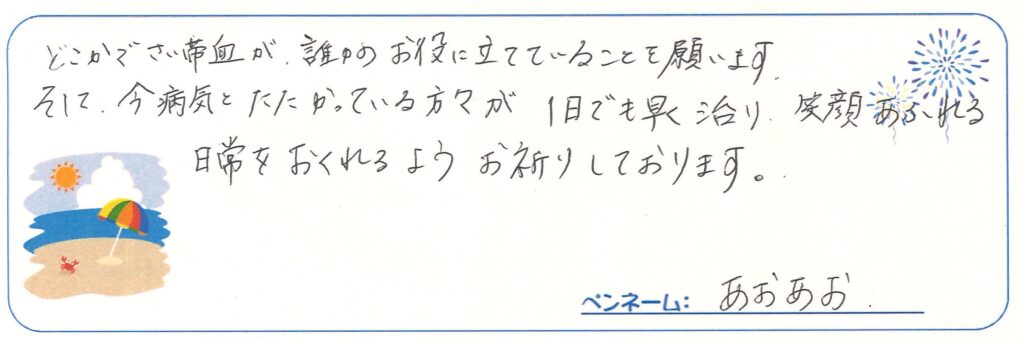 どこかでさい帯血が、誰かのお役に立てていることを願います。
そして、今病気とたたかっている方々が 1日でも早く治り、笑顔あふれる
日常をおくれるよう お祈りしております。
ペンネーム: あおあお